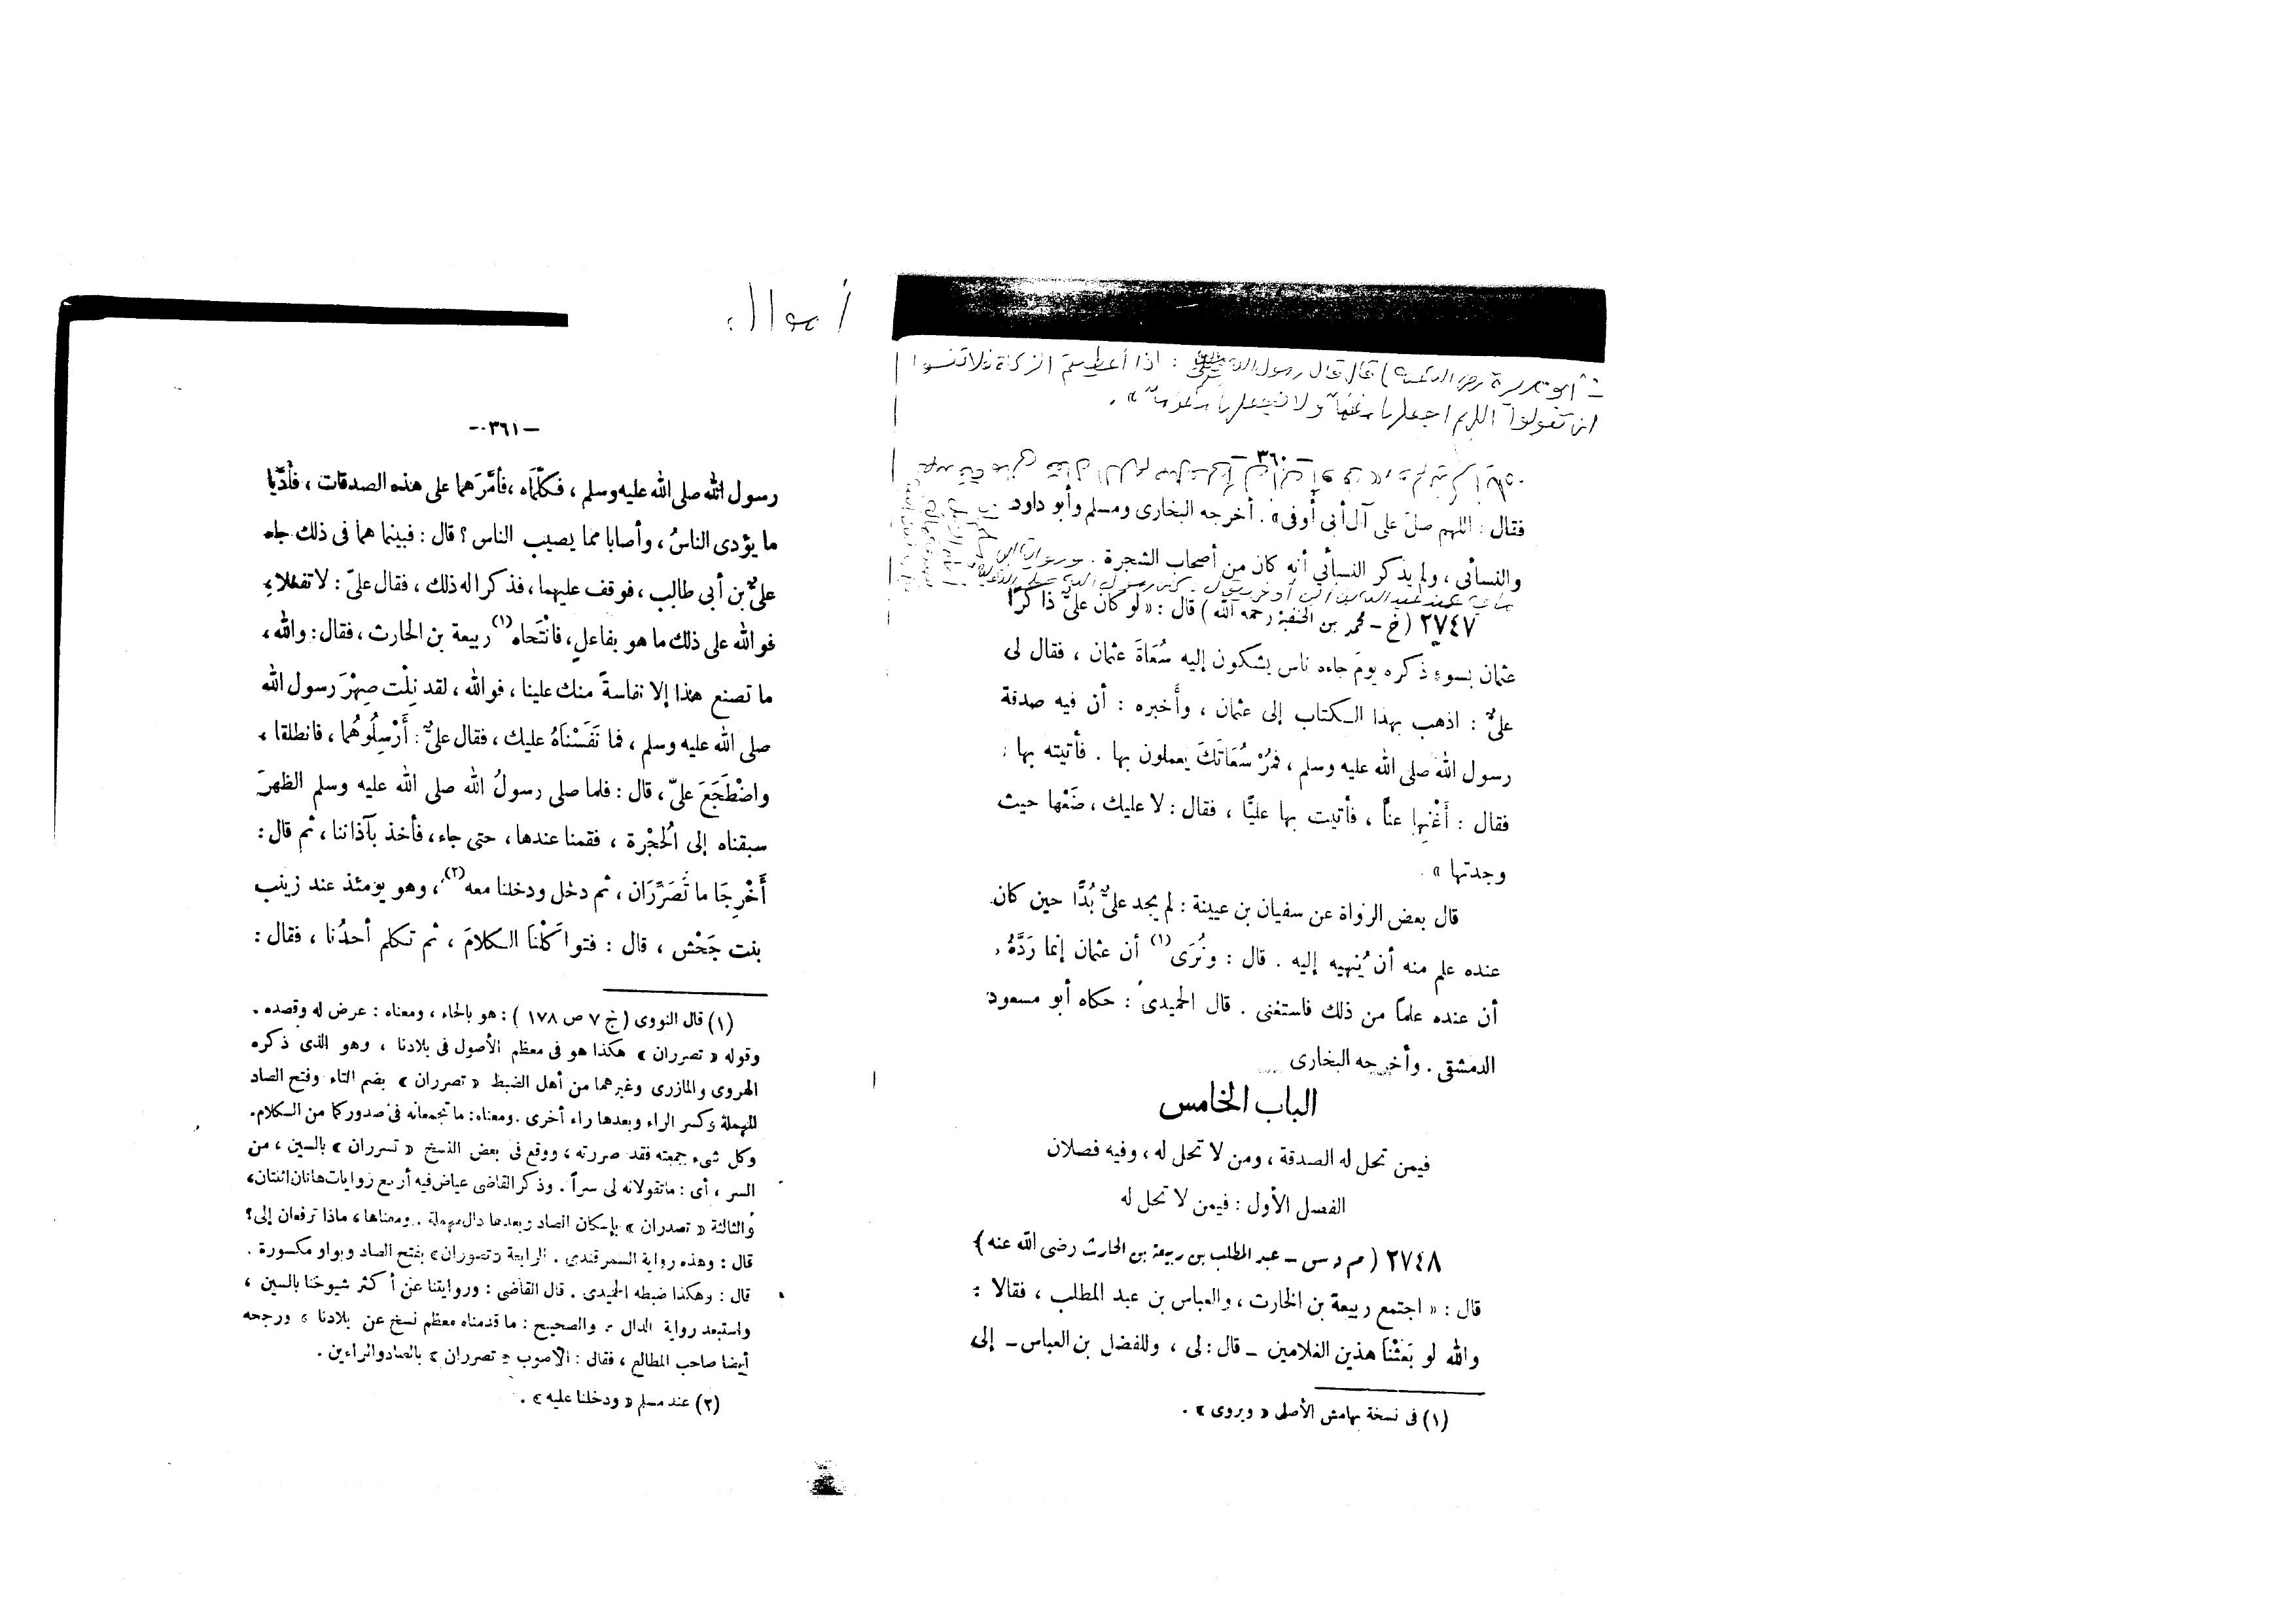 ـ أبو هريرة رضي الله عنه) قال قال رسول الله ﷺ : اذا أعطيتم الزكاة فلا تنسوا
ان تقولوا اللهم اجعلها مغنماً ولا تجعلها مغرماً» .
— ٣٦٠ —
فقال : اللهم صلّ على آل أبى أوفى» . أخرجه البخارى ومسلم وأبو داود
والنسائى ، ولم يذكر النسائي أنه كان من أصحاب الشجرة .
٢٧٤٧ (خ ـ محمد بن الحنفية رحمه الله) قال : «لو كان علىٌّ ذاكرًا
عثمان بسوءٍ ذكره يومَ جاءه ناس يشكون إليه سُعَاةَ عثمان ، فقال لى
علىٌّ : اذهب بهذا الكتاب إلى عثمان ، وأَخبره : أن فيه صدقة
رسول الله صلى الله عليه وسلم ، فمُرْ سُعَاتَكَ يعملون بها . فأتيته بها ،
فقال : أَغْنِها عنَّا ، فأتيت بها عليًّا ، فقال : لا عليك ، ضَعْها حيث
وجدتها » .
قال بعض الرواة عن سفيان بن عيينة : لم يجد علىٌّ بُدًّا حين كان
عنده علم منه أن يُنهيه إليه . قال : ونُرَى (١) أن عثمان إنما رَدَّهُ ,
أن عنده علماً من ذلك فاستغنى . قال الحميدى : حكاه أبو مسعود
الدمشقى . وأخرجه البخارى
الباب الخامس
فيمن تحل له الصدقة ، ومن لا تحل له ، وفيه فصلان
الفصل الأول : فيمن لا تحل له
٢٧٤٨ (م د س ـ عبد المطلب بن ربيعة بن الحارث رضى الله عنه)
قال : « اجتمع ربيعة بن الحارث ، والعباس بن عبد المطلب ، فقالا :
والله لو بَعَثْنَا هذين الغلامين ـ قال : لى ، وللفضل بن العباس ـ إلى
(١) فى نسخة بهامش الأصل « ويروى » .
أموال
— ٣٦١ —
رسول الله صلى الله عليه وسلم ، فكلَّماه ، فأمَّرَهما على هذه الصدقات ، فأدَّيا
ما يؤدى الناسُ ، وأصابا مما يصيب الناس ؟ قال : فبينما هما فى ذلك جاء
علىُّ بن أبى طالب ، فوقف عليهما ، فذكرا له ذلك ، فقال علىّ : لا تفعلا ،
فوالله على ذلك ما هو بفاعلٍ ، فانْتَحاه (١) ربيعة بن الحارث ، فقال : والله ،
ما تصنع هذا إلا نفاسةً منك علينا ، فوالله ، لقد نِلْت صِهْرَ رسول الله
صلى الله عليه وسلم ، فما نَفَسْنَاهُ عليك ، فقال علىٌّ : أَرْسِلُوهُما ، فانطلقا ،
واضْطَجَعَ علىّ ، قال : فلما صلى رسولُ الله صلى الله عليه وسلم الظهرَ
سبقناه إلى الحُجْرة ، فقمنا عندها ، حتى جاء ، فأخذ بآذاننا ، ثم قال :
أَخْرِجَا ما تُصَرِّرَان ، ثم دخل ودخلنا معه (٢) ، وهو يومئذ عند زينب
بنت جَحْش ، قال : فتواكَلْنَا الكلامَ ، ثم تكلم أحدُنا ، فقال :
(١) قال النووى (ج ٧ ص ١٧٨) : هو بالحاء ، ومعناه : عرض له وقصده .
وقوله « تصرران » هكذا هو فى معظم الأصول فى بلادنا ، وهو الذى ذكره
الهروى والمازرى وغيرهما من أهل الضبط « تصرران » بضم التاء وفتح الصاد
المهملة وكسر الراء وبعدها راء أخرى . ومعناه : ما تجمعانه فى صدوركما من الكلام .
وكل شىء جمعته فقد صررته ، ووقع فى بعض النسخ « تسرران » بالسين ، من
السر ، أى : ماتقولانه لى سراً . وذكر القاضى عياض فيه أربع روايات هاتان اثنتان ،
والثالثة « تصدران » بإسكان الصاد وبعدها دال مهملة . ومعناها ، ماذا ترفعان إلى ؟
قال : وهذه رواية السمرقندى . الرابعة « تصوران » بفتح الصاد وبواو مكسورة .
قال : وهكذا ضبطه الحميدى . قال القاضى : وروايتنا عن أكثر شيوخنا بالسين ،
واستبعد رواية الدال ، والصحيح : ما قدمناه معظم نسخ عن بلادنا ، ورجحه
أيضا صاحب المطالع ، فقال : الأصوب « تصرران » بالصاد والراءين .
(٢) عند مسلم « ودخلنا عليه » .